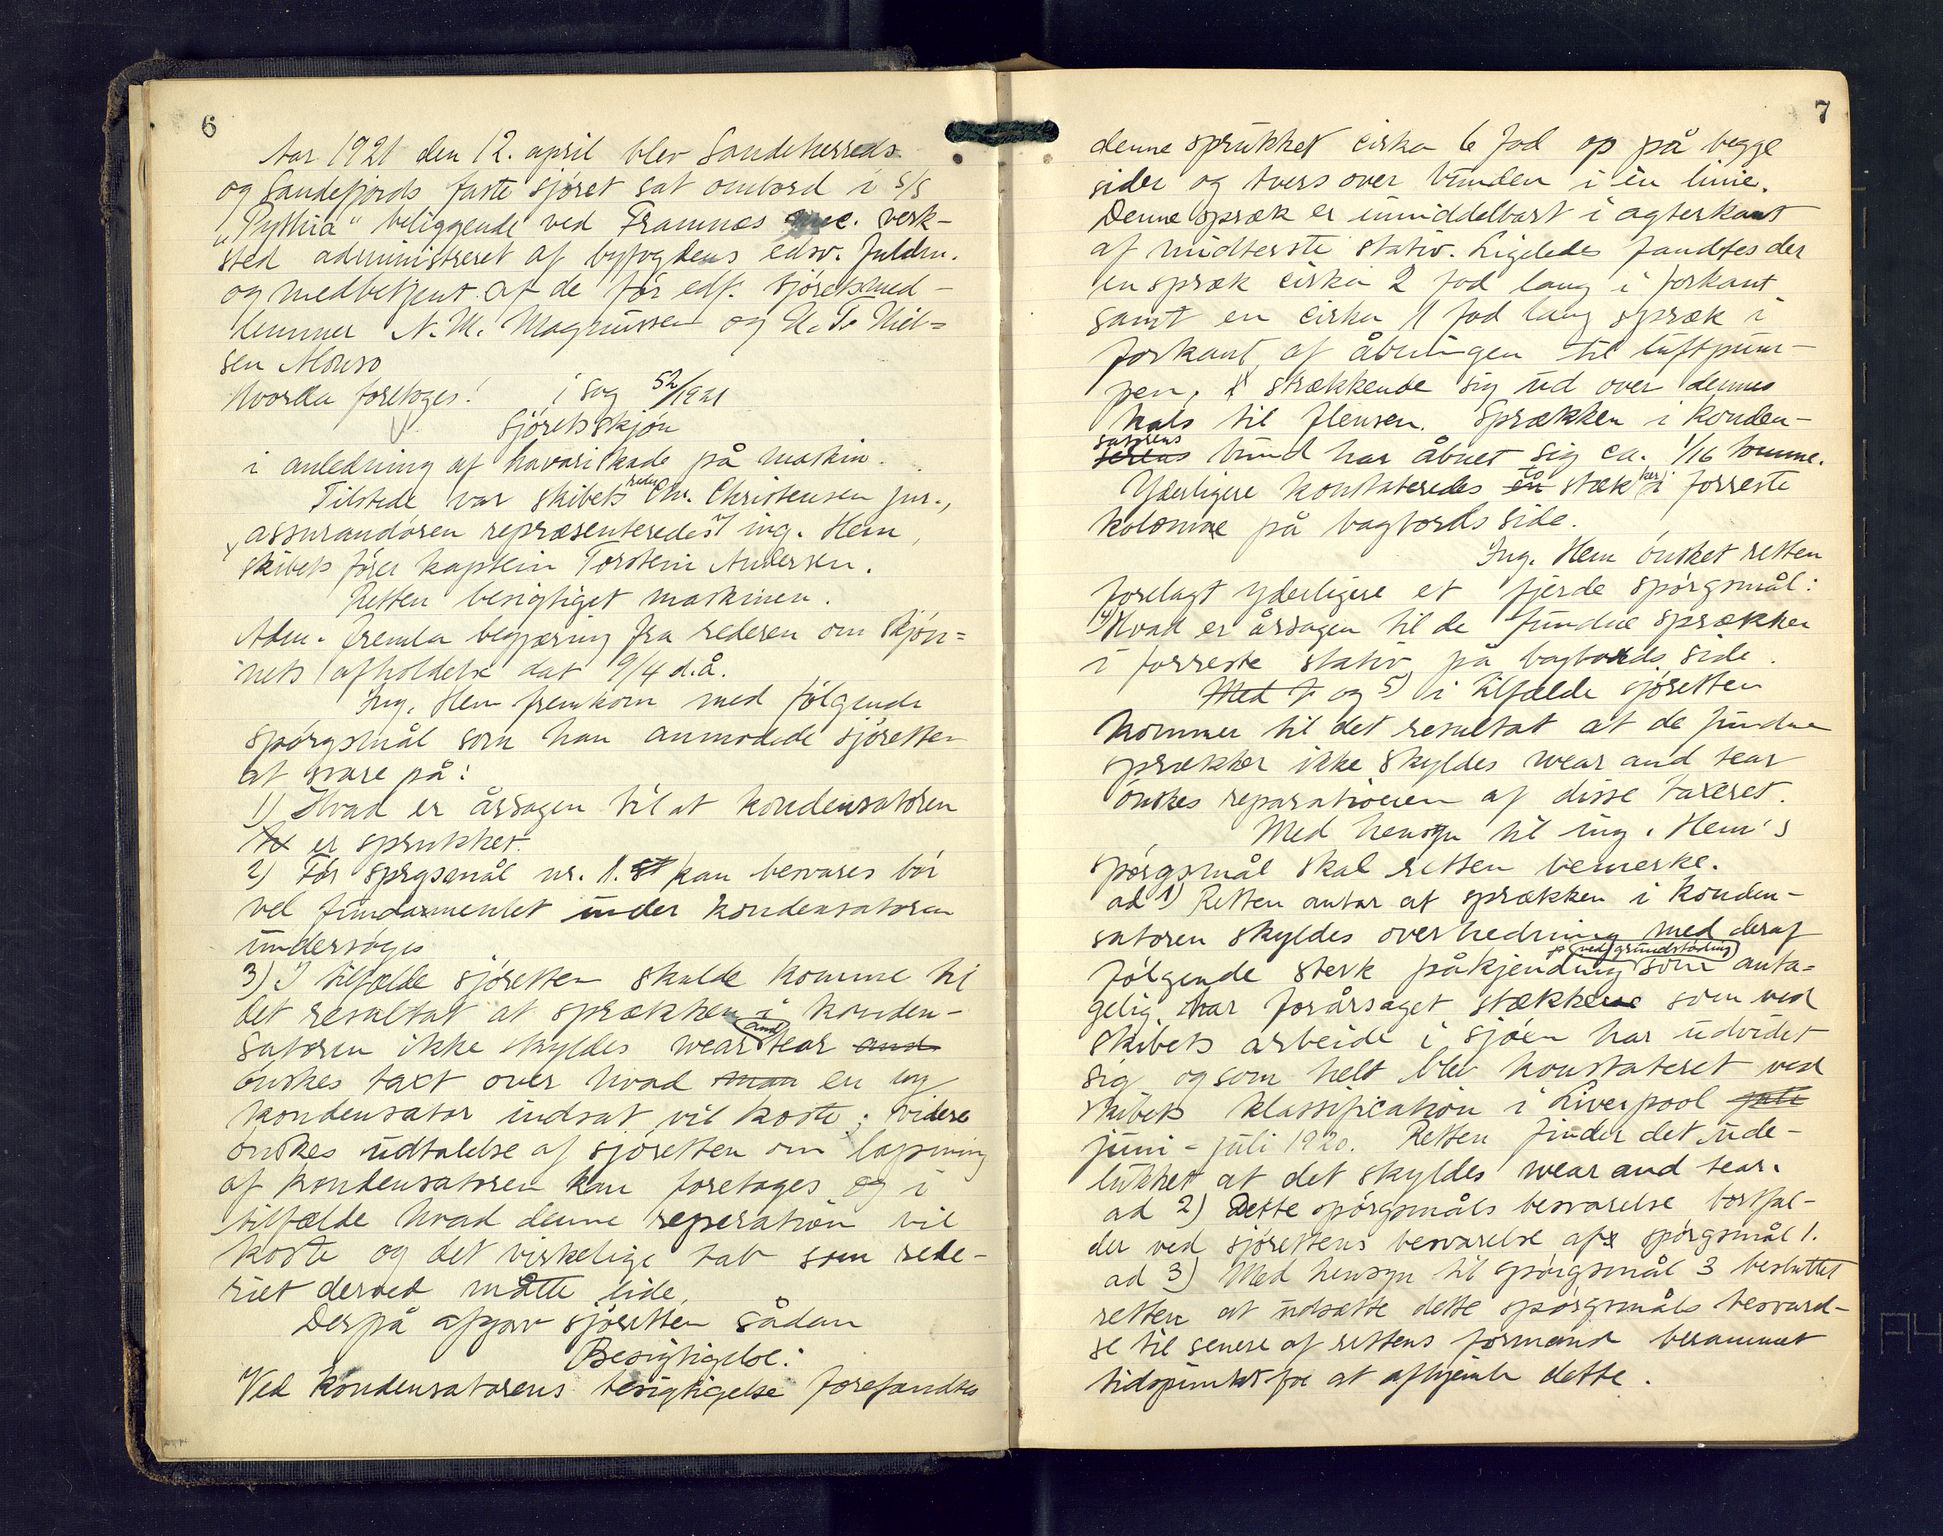 6
Aar 1921 den 12. april blev Sandeherreds
og Sandefjords faste sjøret sat ombord i S/S
"Pythia" beliggende ved Framnæs mec. verk-
sted administreret af byfogdens edsv. fuldm.
og medbetjent af de før edf. sjøretsmed-
lemmer N. M. Magnussen og H. T. Niel-
sen Monso
Hvorda foretoges! i sag 52/1921
Sjøretsskjøn
i anledning af havariskade på maskin.
Tilstede var skibets reder Chr. Christensen jur.,
assurandøren repræsenteredes v/ ing. Hem,
skibets fører kaptein Torstein Andersen.
Retten besigtiget maskinen.
Adm. fremla begjæring fra rederen om skjøn-
nets afholdelse dat 9/4 d.å.
Ing. Hem fremkom med følgende
spørgsmål som han anmodede sjøretten
at svare på:
1) Hvad er årsagen til at kondensatoren
er sprukket.
2) Før spørgsmål nr. 1. kan besvares bør
vel fundamentet under kondensatoren
undersøges
3) I tilfælde sjøretten skulde komme til
det resultat at sprækken i konden-
satoren ikke skyldes wear and tear and
ønskes taxt over hvad man en ny
kondensator indsat vil koste; videre
ønskes udtalelse af sjøretten om lapning
af kondensatoren kan foretages og i
tilfælde hvad denne reperation vil
koste og det virkelige tab som rede-
riet derved måtte lide.
Derpå afgav sjøretten sådan
Besigtigelse:
Ved kondensatorens besigtigelse forefandtes
7
denne sprukket cirka 6 fod op på begge
sider og tvers over bunden i en linie.
Denne spræk er umiddelbart i agterkant
af midterste stativ. Ligeledes fandtes der
en spræk cirka 2 fod lang i forkant
samt en cirka 1 fod lang spræk i
forkant af åbningen til luftpum-
pen, strækkende sig ud over dennes
hals til flensen. Sprækken i konden-
satorens bund har åbnet sig ca. 1/16 tomme.
Yderligere konstateredes en to stæk ker i forreste
kolonne på bagbords side.
Ing. Hem ønsket retten
forelagt yderligere et fjerde spørgsmål:
4) Hvad er årsagen til de fundne sprækker
i forreste stativ på bagbords side.
Med h og 5) i tilfælde sjøretten
kommer til det resultat at de fundne
sprækker ikke skyldes wear and tear
ønskes reparationen af disse taxeret.
Med hensyn til ing. Hem's
spørgsmål skal retten bemerke.
ad 1) Retten antar at sprækken i konden-
satoren skyldes overhedning med deraf
følgende sterk påkjendning ved grundstødning som anta-
gelig har forårsaget stækkene som ved
skibets arbeide i sjøen har udvidet
sig og som helt blev konstateret ved
skibets klassification i Liverpool juli
juni - juli 1920. Retten finder det ude-
lukket at det skyldes wear and tear.
ad 2) Dette spørgsmåls besvarelse bortfal-
der ved sjørettens besvarelse af spørgsmål 1.
ad 3) Med hensyn til spørgsmål 3 besluttet
retten at udsætte dette spørgsmåls besvarel-
se til senere af rettens formand berammet
tidspunkt for at afhjemle dette.